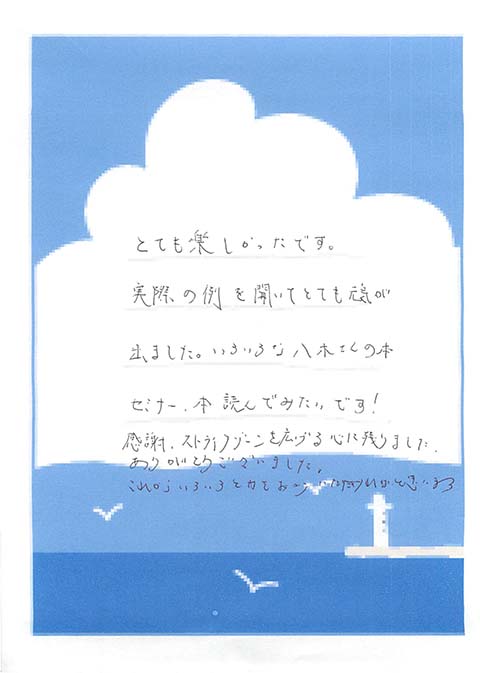 とても楽しかったです。
実際の例を聞いてとても元気が
出ました。いろいろな八木さんの本
セミナー、本読んでみたいです!
感謝、ストライクゾーンを広げる心に残りました。
ありがとうございました。
これからいろいろと力を お と思います